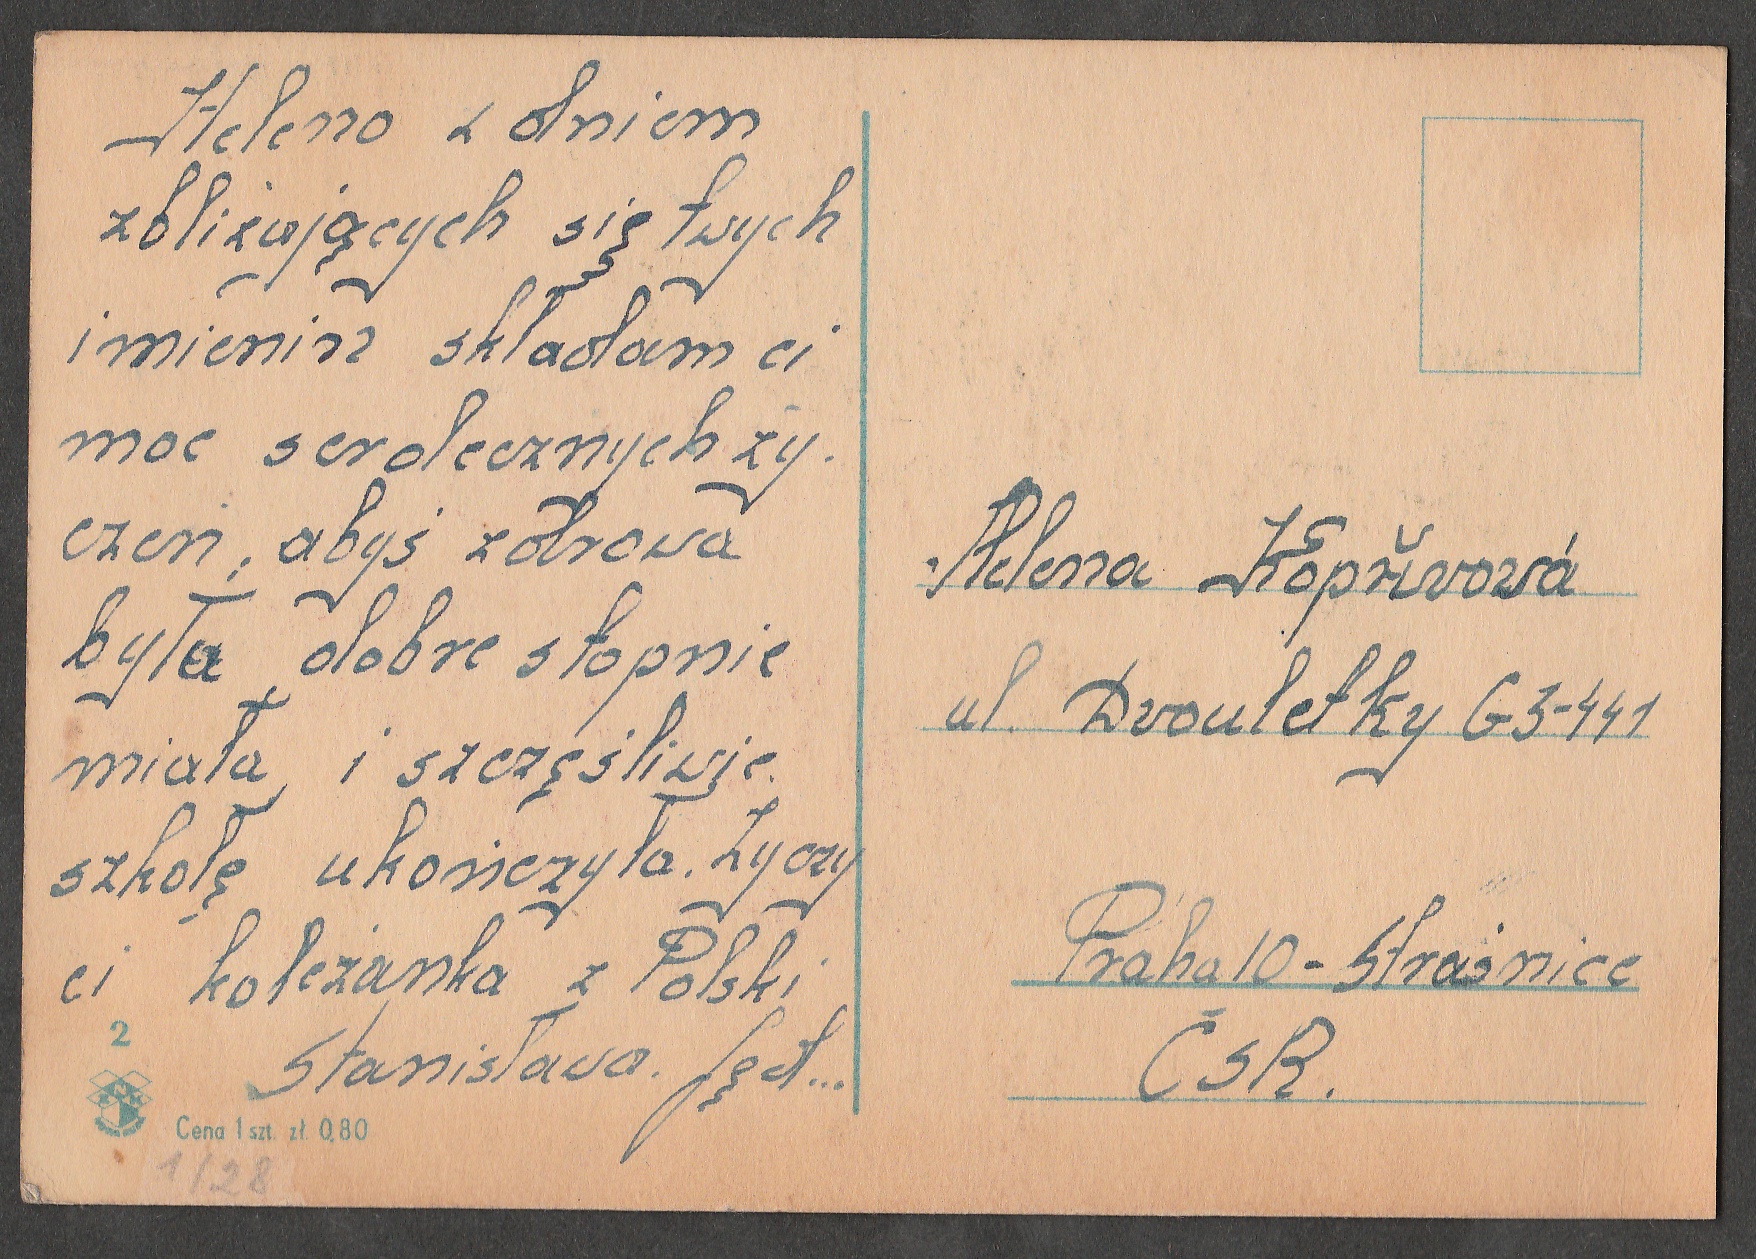 Heleno z dniem
zbliżających się twych
imienin składam ci
moc serdecznych ży.
czeń, abyś zdrowa
była, dobre stopnie
miała, i szczęśliwie
szkołę ukończyła. Życzy
ci koleżanka z Polski
Stanisława.
2
Cena 1 szt. zł. 0,80
1/28
Helena Kopřivová
ul. Dvouletky G3-441
Praha 10 - Straśnice
ČSR.